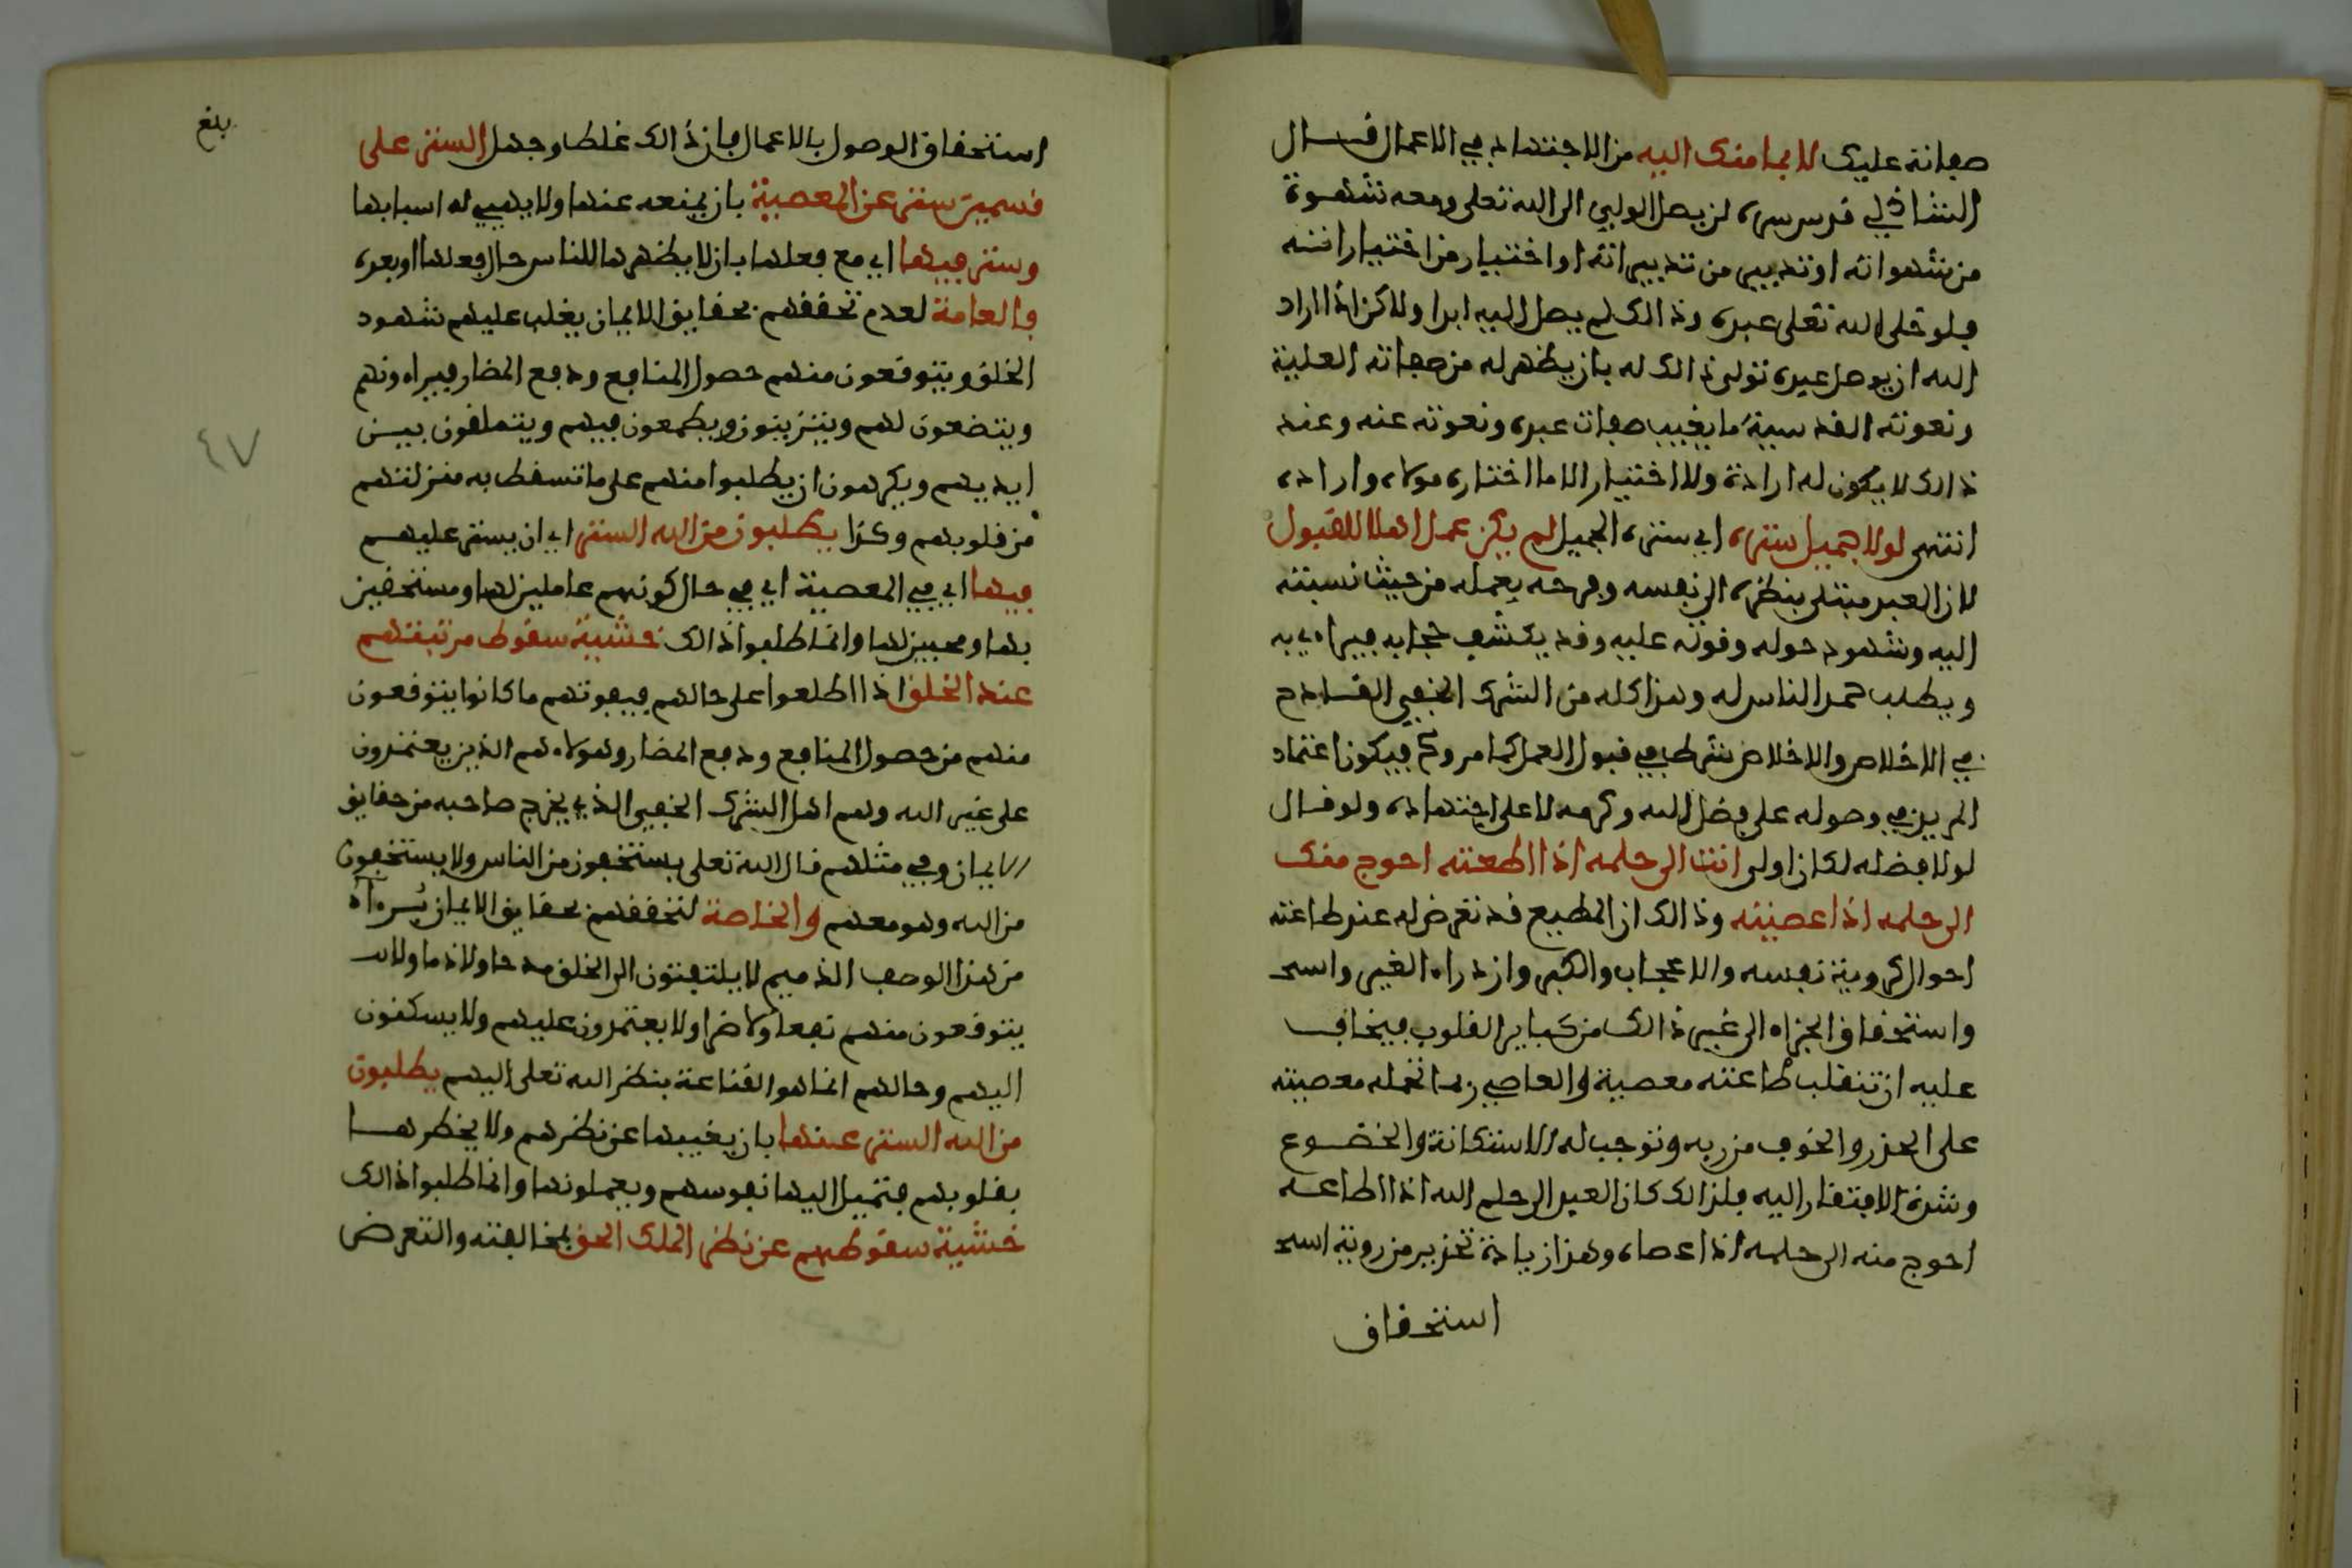 صفاته عليك لا بما منك اليه من الاجتهاد في الاعمال قال
الشاذلي قدس سره لن يصل الولي الى الله تعلى ومعه شهوة
من شهواته او تدبير من تدبيراته او اختيار من اختياراته
فلو خلى الله تعلى عبده وذالك لم يصل اليه ابدا ولاكن اذا اراد
الله ان يوصل عبده تولى ذالك له بان يظهر له من صفاته العلية
ونعوته القدسية ما يغيب صفات عبده ونعوته عنه وعند
ذالك لا يكون له ارادة ولا اختيار الا ما اختاره مولاه واراده
انتهى لولا جميل ستره اي ستره الجميل لم يكن عمل اهلا للقبول
لان العبد مبتلى بنظره الى نفسه وفرحه بعمله من حيث نسبته
اليه وشهود حوله وقوته عليه وقد يكشف حجابه فيراءي به
ويطلب حمد الناس له وهذا كله من الشرك الخفي القادح
في الاخلاص والاخلاص شرط في قبول العمل كما مر وح فيكون اعتماد
المريد في وصوله على فضل الله وكرمه لا على اجتهاده ولو قال
لولا فضله لكان اولى انت الى حلمه اذا اطعته احوج منك
الى حلمه اذا عصيته وذالك ان المطيع قد تعرض له عند طاعته
احوال كروية نفسه والاعجاب والكبر وازدراء الغير واسحـ
واستحقاق الجزاء الى غير ذالك من كباير القلوب فيخاف
عليه ان تنقلب طاعته معصية والعاصي ربما تحمله معصيته
على الحذر والخوف من ربه وتوجب له الاستكانة والخضوع
وشدة الافتقار اليه فلذالك كان العبد الى حلم الله اذا اطاعه
احوج منه الى حلمه اذا عصاه وهذا زيادة تحذير من روية اسحـ
استحقاق
بلغ
استحقاق الوصول بالاعمال فان ذالك غلط وجهل الستر على
قسمين ستر عن المعصية بان يمنعه عنها ولا يهيي له اسبابها
وستر فيها اي مع فعلها بان لا يظهرها للناس حال فعلها او بعده
والعامة لعدم تحققهم بحقايق الايمان يغلب عليهم شهود
الخلق ويتوقعون منهم حصول المنافع ودفع المضار فيراءونهم
ويتضعون لهم ويتزينون ويطمعون فيهم ويتملقون بين
ايديهم ويكرهون ان يطلبوا منهم على ما تسقط به منزلتهم
من قلوبهم وكذا يطلبون من الله الستر اي ان يستر عليهم
فيها اي في المعصية اي في حال كونهم عاملين لها ومستخفين
بها ومحبين لها وانما طلبوا ذالك خشية سقوط مرتبتهم
عند الخلق اذا اطلعوا على حالهم فيفوتهم ما كانوا يتوقعون
منهم من حصول المنافع ودفع المضار وهولاء هم الذين يعتمدون
على غير الله وهم اهل الشرك الخفي الذي يخرج صاحبه من حقايق
الايمان وفي مثلهم قال الله تعلى يستخفون من الناس ولا يستخفون
من الله وهو معهم والخاصة لتحققهم بحقايق الايمان بُرءآء
من هذا الوصف الذميم لا يلتفتون الى الخلق مدحا ولا ذما ولا
يتوقعون منهم نفعا ولا ضرا ولا يعتمدون عليهم ولا يسكنون
اليهم وحالهم انما هو القناعة بنظر الله تعلى اليهم يطلبون
من الله الستر عنها بان يغيبها عن نظرهم ولا يخطرها
بقلوبهم فتميل اليها نفوسهم ويعملونها وانما طلبوا ذالك
خشية سقوطهم عن نظر الملك الحق بمخالفته والتعرض
٤٧